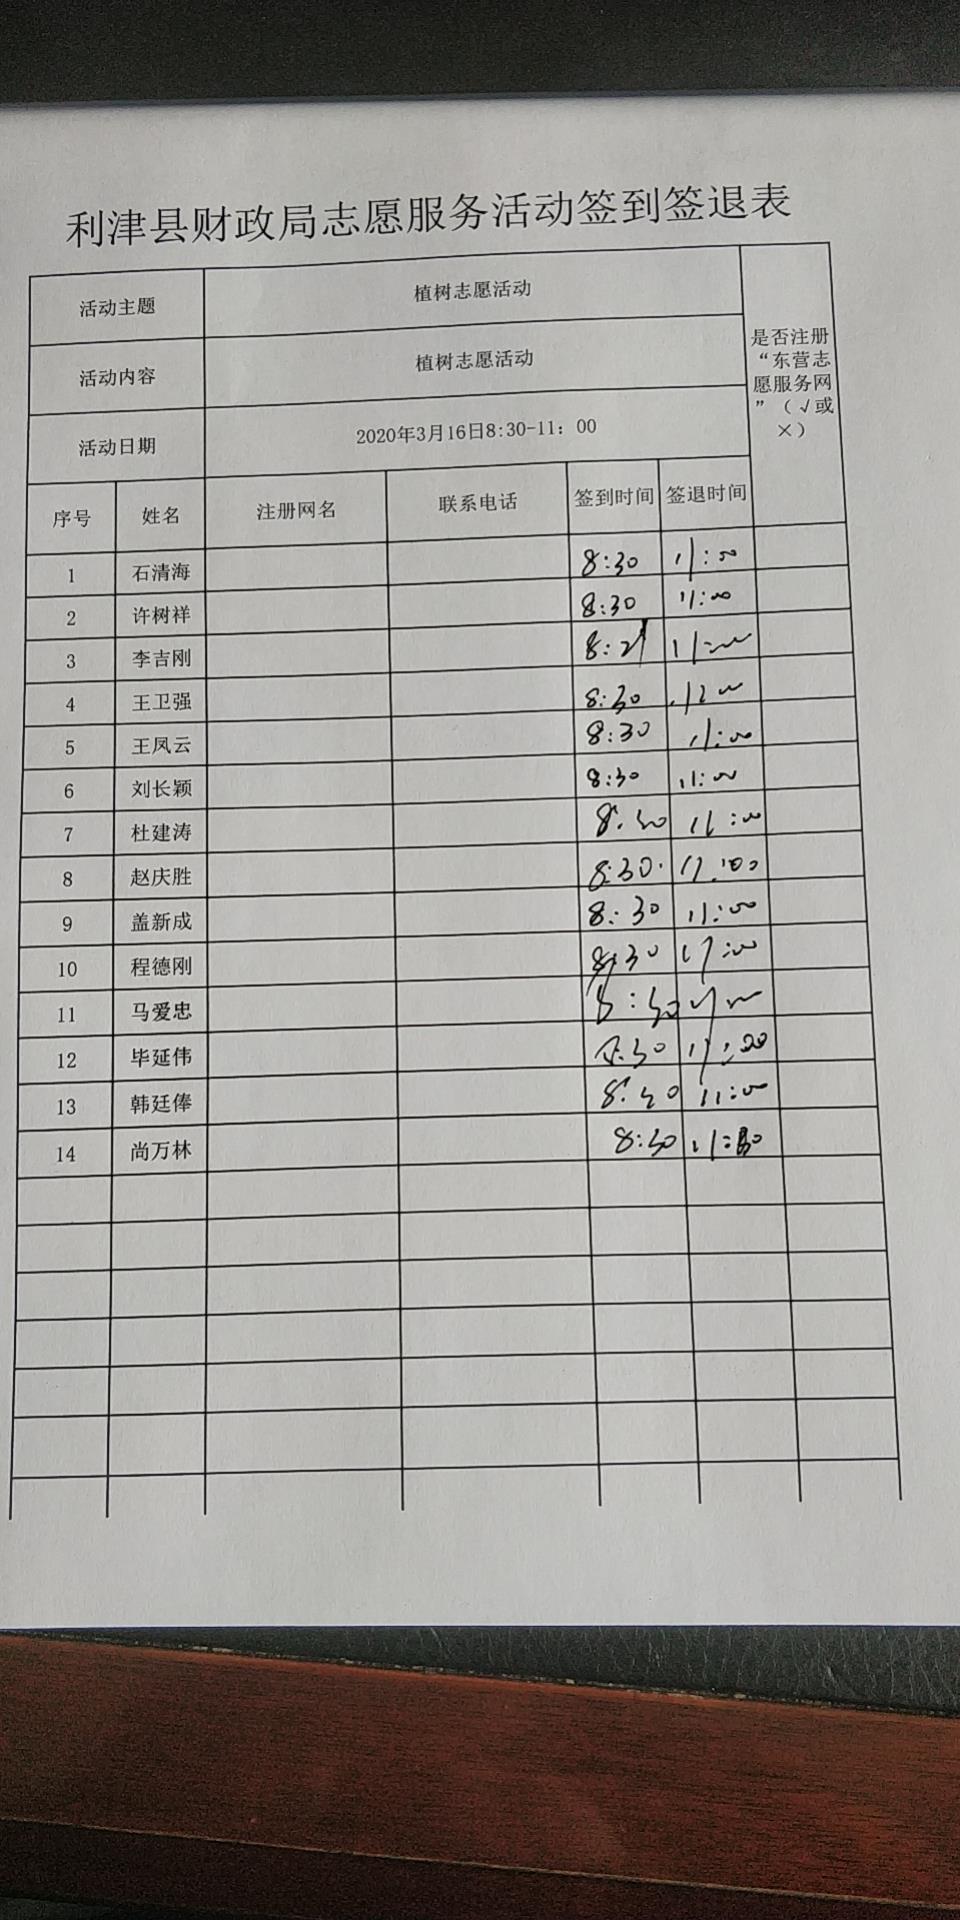 利津县财政局志愿服务活动签到签退表
活动主题 植树志愿活动
活动内容 植树志愿活动
活动日期 2020年3月16日8:30-11：00
是否注册
“东营志
愿服务网
”（√或
×）
序号 姓名 注册网名 联系电话 签到时间 签退时间
1 石清海 8:30 11:00
2 许树祥 8:30 11:00
3 李吉刚 8:21 11:00
4 王卫强 8:30
5 王凤云 8:30 11:00
6 刘长颖 8:30 11:00
7 杜建涛 8:30 11:00
8 赵庆胜 8:30 11:00
9 盖新成 8:30 11:00
10 程德刚 8:30 11:00
11 马爱忠 8:30
12 毕延伟 8:30 11:00
13 韩廷俸 8:30 11:00
14 尚万林 8:30